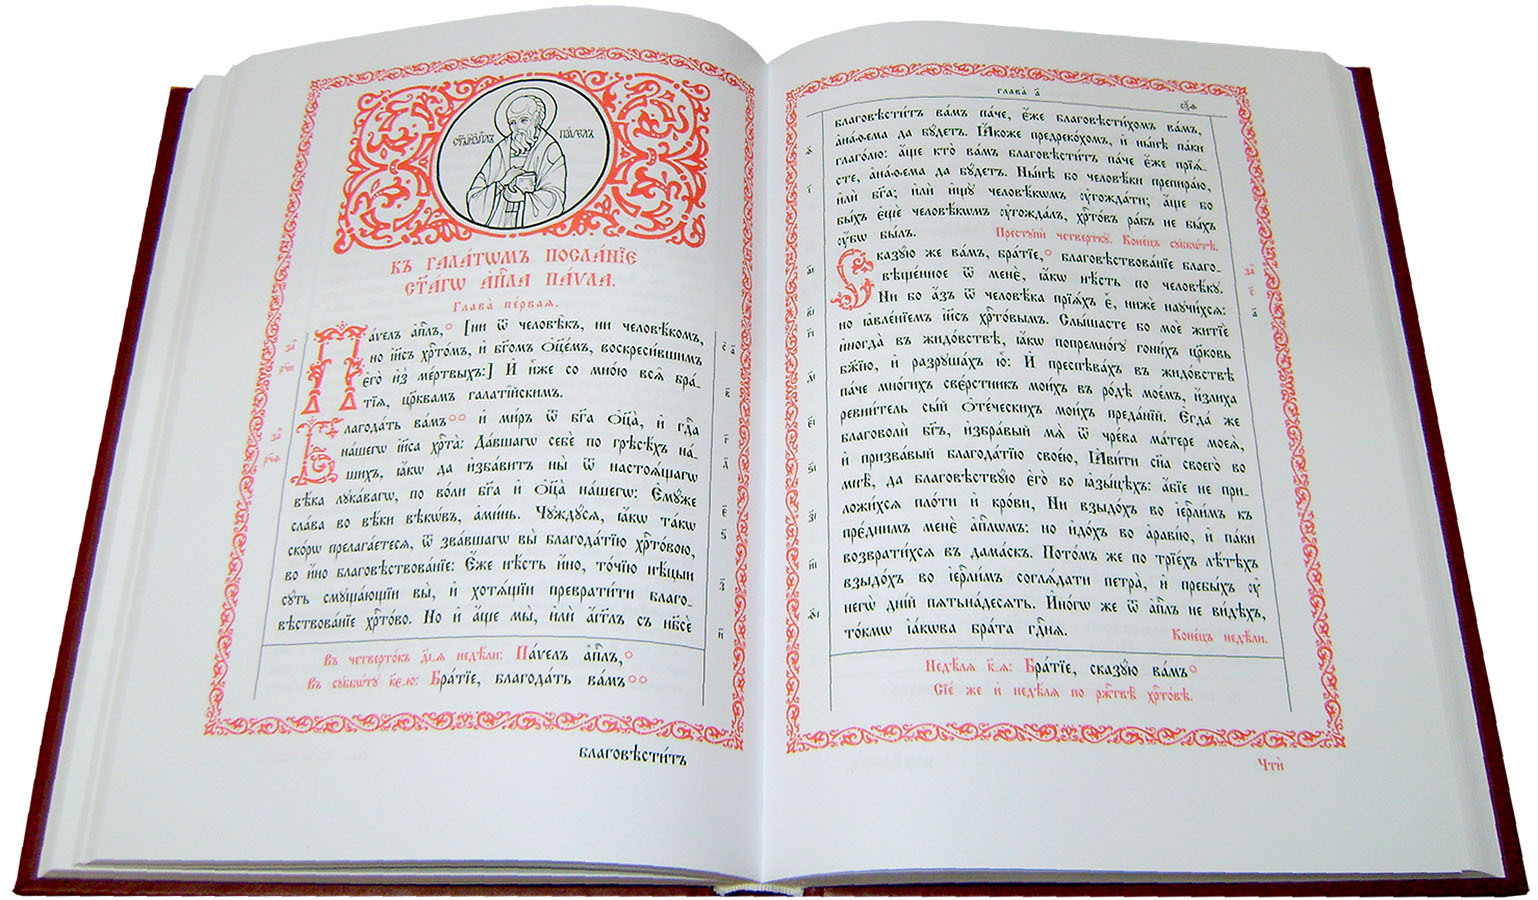 ст҃ы́й а҆пⷭ҇лъ па́велъ
Къ гала́тѡмъ посла́нїе
ст҃а́гѡ а҆пⷭ҇ла па́ѵла.
Глава̀ пе́рвая.
Па́ѵелъ а҆пⷭ҇лъ, [ни ѿ человѣ̑къ, ни человѣ́комъ,
но і҆и҃съ хрⷭ҇то́мъ, и҆ бг҃омъ ѻ҆ц҃е́мъ, воскреси́вшимъ
є҆го̀ и҆з̾ ме́ртвыхъ:] И҆ и҆̀же со мно́ю всѧ̑ бра́-
тїѧ, цр҃квамъ галаті̑йскимъ.
Благода́ть ва́мъ и҆ ми́ръ ѿ бг҃а ѻ҆ц҃а̀, и҆ гдⷭ҇а
на́шегѡ і҆и҃са хрⷭ҇та̀: Да́вшагѡ себѐ по грѣсѣ́хъ на́-
шихъ, ꙗ҆́кѡ да и҆зба́витъ ны̀ ѿ настоѧ́щагѡ
вѣ́ка лука́вагѡ, по во́ли бг҃а и҆ ѻ҆ц҃а̀ на́шегѡ: Є҆му́же
сла́ва во вѣ́ки вѣкѡ́въ, а҆ми́нь. Чꙋждꙋ́сѧ, ꙗ҆́кѡ та́кѡ
ско́рѡ прелага́етесѧ, ѿ зва́вшагѡ вы̀ благода́тїю хрⷭ҇то́вою,
во и҆́но благовѣствова́нїе: Є҆́же нѣ́сть и҆́но, то́чїю нѣ́цыи
сꙋ́ть смꙋща́ющїи вы̀, и҆ хотѧ́щїи преврати́ти благо-
вѣствова́нїе хрⷭ҇то́во. Но и҆ а҆́ще мы̀, и҆лѝ а҆́гг҃лъ съ нб҃сѐ
Въ четверто́къ д҃і-ѧ недѣ́ли: Па́ѵелъ а҆пⷭ҇лъ,
Въ сꙋббѡ́тꙋ к҃е-ю: Бра́тїе, благода́ть ва́мъ
благовѣсти́тъ
глава̀ а҃
благовѣсти́тъ ва́мъ па́че, є҆́же благовѣсти́хомъ ва́мъ,
а҆на́ѳема да бꙋ́детъ. Ꙗ҆́коже предреко́хомъ, и҆ ны́нѣ па́ки
глаго́лю: а҆́ще кто̀ ва́мъ благовѣсти́тъ па́че є҆́же прїѧ́-
сте, а҆на́ѳема да бꙋ́детъ. Ны́нѣ бо человѣ́ки препира́ю,
и҆лѝ бг҃а; и҆лѝ и҆щꙋ̀ человѣ́кѡмъ ᲂу҆гожда́ти; а҆́ще бо
бы́хъ є҆щѐ человѣ́кѡмъ ᲂу҆гожда́лъ, хрⷭ҇то́въ ра́бъ не бы́хъ
ᲂу҆́бѡ бы́лъ. Престꙋпѝ четверткꙋ̀. Коне́цъ сꙋббѡ́тѣ.
Сказꙋ́ю же ва́мъ, бра́тїе, благовѣствова́нїе благо-
вѣще́нное ѿ менѐ, ꙗ҆́кѡ нѣ́сть по человѣ́кꙋ.
Ни бо а҆́зъ ѿ человѣ́ка прїѧ́хъ є҆̀, нижѐ наꙋчи́хсѧ:
но ꙗ҆вле́нїемъ і҆и҃съ хрⷭ҇то́вымъ. Слы́шасте бо моѐ житїѐ
и҆ногда̀ въ жидо́вствѣ, ꙗ҆́кѡ попремно́гꙋ гони́хъ цр҃ковь
бж҃їю, и҆ разрꙋша́хъ ю҆̀: И҆ преспѣва́хъ въ жидо́вствѣ
па́че мно́гихъ све́рстникъ мои́хъ въ ро́дѣ мое́мъ, и҆́злиха
ревни́тель сы́й ѻ҆те́ческихъ мои́хъ преда́нїй. Е҆гда́ же
благоволѝ бг҃ъ, и҆збра́вый мѧ̀ ѿ чре́ва ма́тере моеѧ̀,
и҆ призва́вый благода́тїю свое́ю, Ꙗ҆ви́ти сн҃а своего̀ во
мнѣ̀, да благовѣствꙋ́ю є҆го̀ во ꙗ҆зы́цѣхъ: а҆́бїе не при-
ложи́хсѧ пло́ти и҆ кро́ви, Ни взыдо́хъ во і҆ерⷭ҇ли́мъ къ
пре́днимъ менѐ а҆пⷭ҇лѡмъ: но и҆до́хъ во а҆раві́ю, и҆ па́ки
возврати́хсѧ въ дама́скъ. Пото́мъ же по трїе́хъ лѣ́тѣхъ
взыдо́хъ во і҆ерⷭ҇ли́мъ соглѧ́дати петра̀, и҆ пребы́хъ ᲂу҆
негѡ̀ дні́й пѧтьна́десѧть. И҆но́гѡ же ѿ а҆пⷭ҇лъ не ви́дѣхъ,
то́кмѡ і҆а́кѡва бра́та гдⷭ҇нѧ. Коне́цъ недѣ́ли.
Недѣ́лѧ к҃-ѧ: Бра́тїе, сказꙋ́ю ва́мъ
Сїе́ же и҆ недѣ́лѧ по ржⷭ҇твѣ̀ хрⷭ҇то́вѣ.
Чтѝ